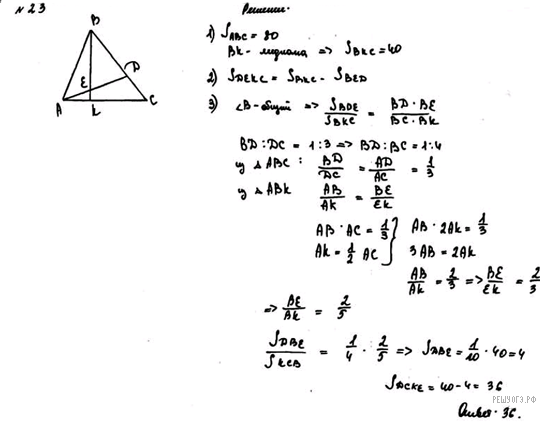 № 23
Решение.
B
D
E
A
K
C
1) S_ABC = 80
BK - медиана => S_BKC = 40
2) S_DEKC = S_BKC - S_BED
3) ∠B - общий => S_BDE / S_BKC = BD · BE / BC · BK
BD : DC = 1 : 3 => BD : BC = 1 : 4
у △ ABC : BD / DC = AD / AC = 1 / 3
у △ ABK AB / AK = BE / EK
AB · AC = 1 / 3 } AB · 2AK = 1 / 3
AK = 1 / 2 AC } 3AB = 2AK
AB / AK = 2 / 3 => BE / EK = 2 / 3
=> BE / BK = 2 / 5
S_DBE / S_KCB = 1 / 4 · 2 / 5 => S_DBE = 1 / 10 · 40 = 4
S_DCKE = 40 - 4 = 36
Ответ · 36.
РЕШУОГЭ.РФ